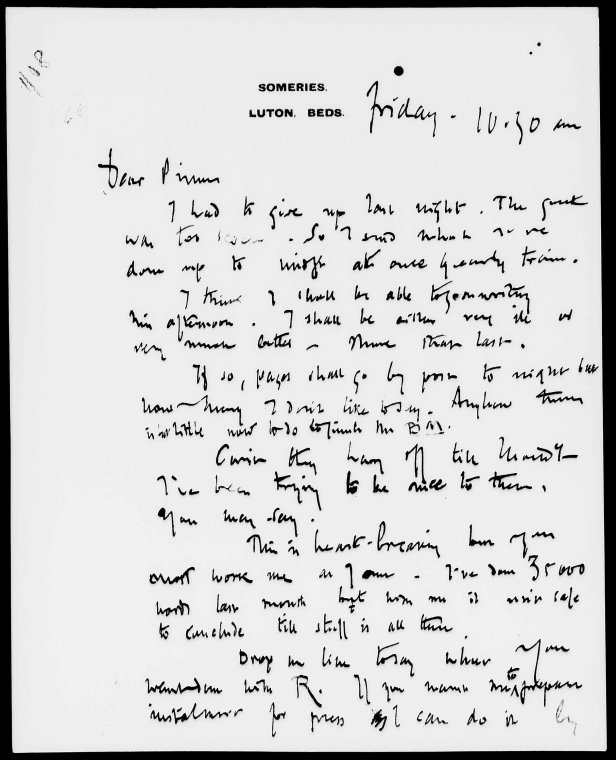 SOMERIES.
LUTON. BEDS.
Friday. 10.30 am
Dear Pinker
I had to give up last night. The
was too . So I send what I've
done up to at once by early train.
I think I shall be able to go on writing
this afternoon. I shall be either very ill or
very much better – think that last.
If so, pages shall go by post to night but
how many I don't like to say. Anyhow there
is little now to do to finish the
Can't they hang off till
I've been trying to be nice to them,
you may say.
This is heart-breaking but you
must work me as I am. I've done 35000
words last month but with me it isn't safe
to conclude till stuff is all there.
Drop me line to say when you
with R. If you want me to prepare
instalment for press I can do it by